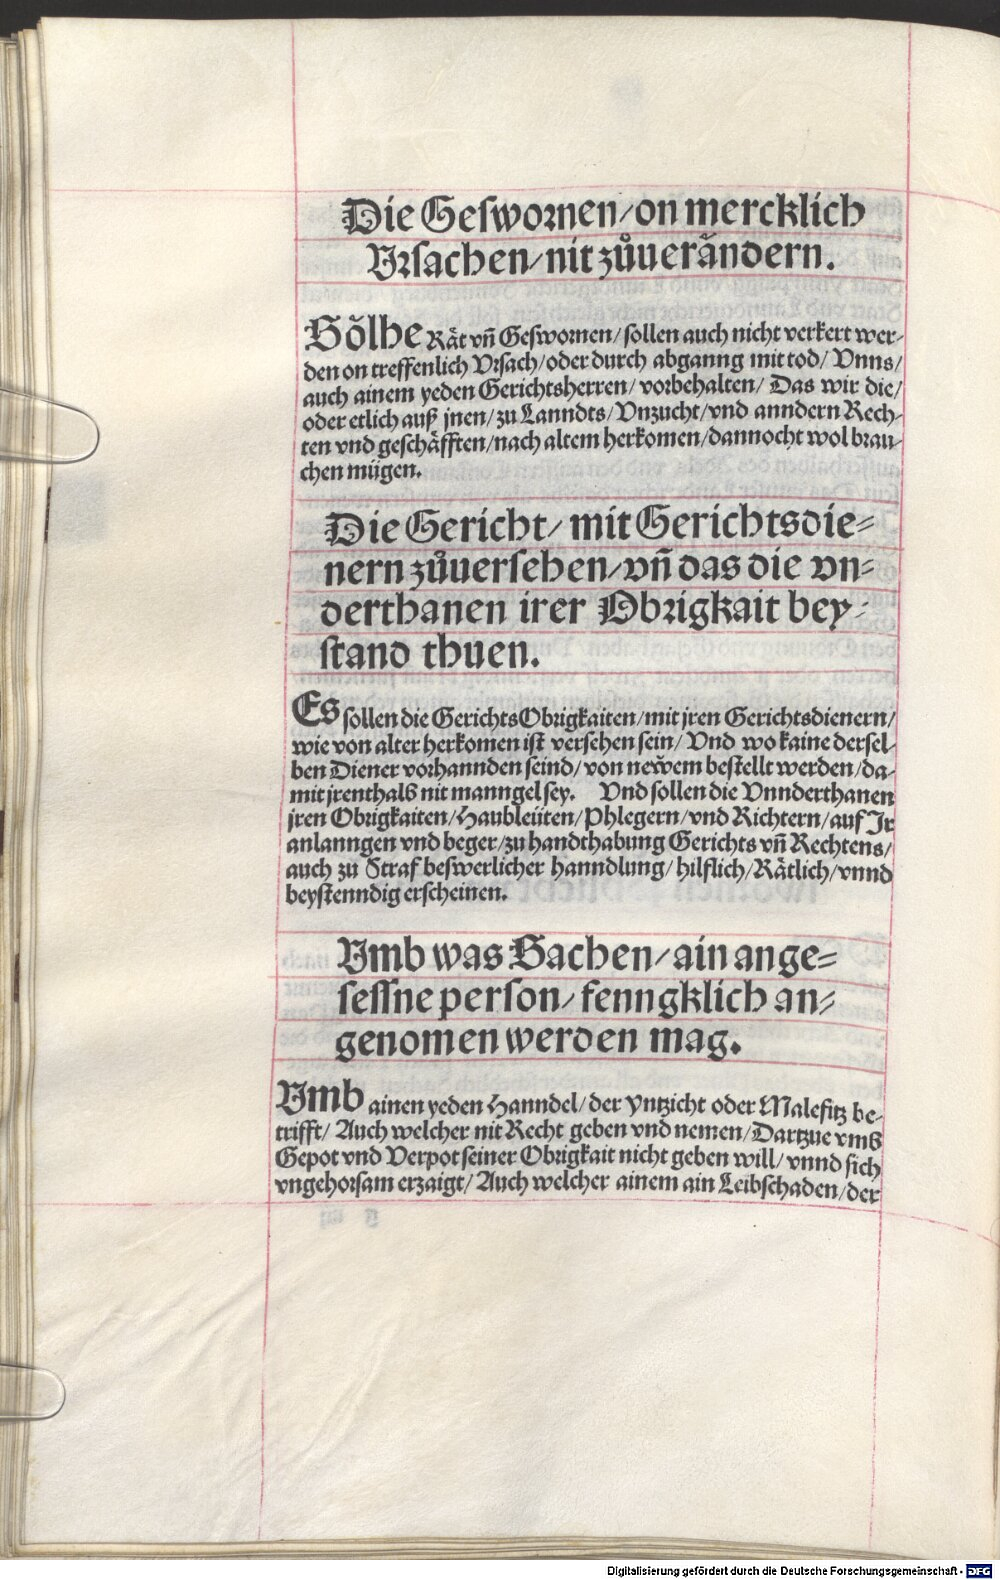 Die Geswornen/on mercklich
Vrsachen/nit zůuerändern.
Sölhe Rät vn̄ Geswornen/sollen auch nicht verkert wer-
den on treffenlich Vrsach/oder durch abganng mit tod/Vnns/
auch ainem yeden Gerichtsherren/vorbehalten/Das wir die/
oder etlich auß jnen/zu Lanndts/Vnzucht/vnd anndern Rech-
ten vnd geschäfften/nach altem herkomen/dannocht wol brau-
chen mügen.
Die Gericht/mit Gerichtsdie=
nern zůuersehen/vn̄ das die vn=
derthanen irer Obrigkait bey=
stand thuen.
Es sollen die GerichtsObrigkaiten/mit jren Gerichtsdienern/
wie von alter herkomen ist versehen sein/Vnd wo kaine dersel-
ben Diener vorhannden seind/von newem bestellt werden/da-
mit jrenthalb nit manngel sey. Vnd sollen die Vnnderthanen
jren Obrigkaiten/Haubleüten/Phlegern/vnd Richtern/auf Ir
anlanngen vnd beger/zu handthabung Gerichts vn̄ Rechtens/
auch zu Straf beswerlicher hanndlung/hilflich/Rätlich/vnnd
beystenndig erscheinen.
Vmb was Sachen/ain ange=
sessne person/fenngklich an=
genomen werden mag.
Vmb ainen yeden Hanndel/der Vntzicht oder Malefitz be-
trifft/Auch welcher nit Recht geben vnd nemen/Dartzue vmb
Gepot vnd Verpot seiner Obrigkait nicht geben will/vnnd sich
vngehorsam erzaigt/Auch welcher ainem ain Leibschaden/der
Digitalisierung gefördert durch die Deutsche Forschungsgemeinschaft - DFG